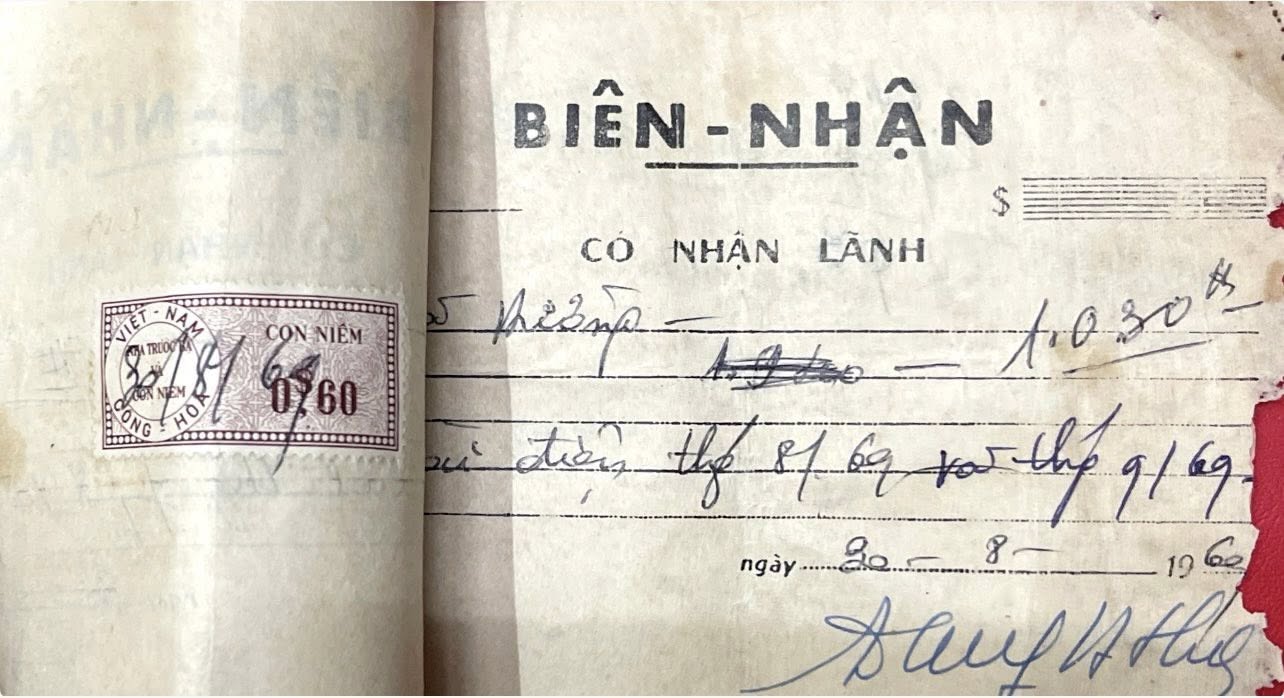 BIÊN-NHẬN
$
CÓ NHẬN LÃNH
VIỆT-NAM
CỘNG-HÒA
NHÀ TRƯỚC BẠ
VÀ
CON NIÊM
CON NIÊM
0$60
30/8/69
1.030đ
điện thg 8/69 và thg 9/69.
ngày 30-8-1969